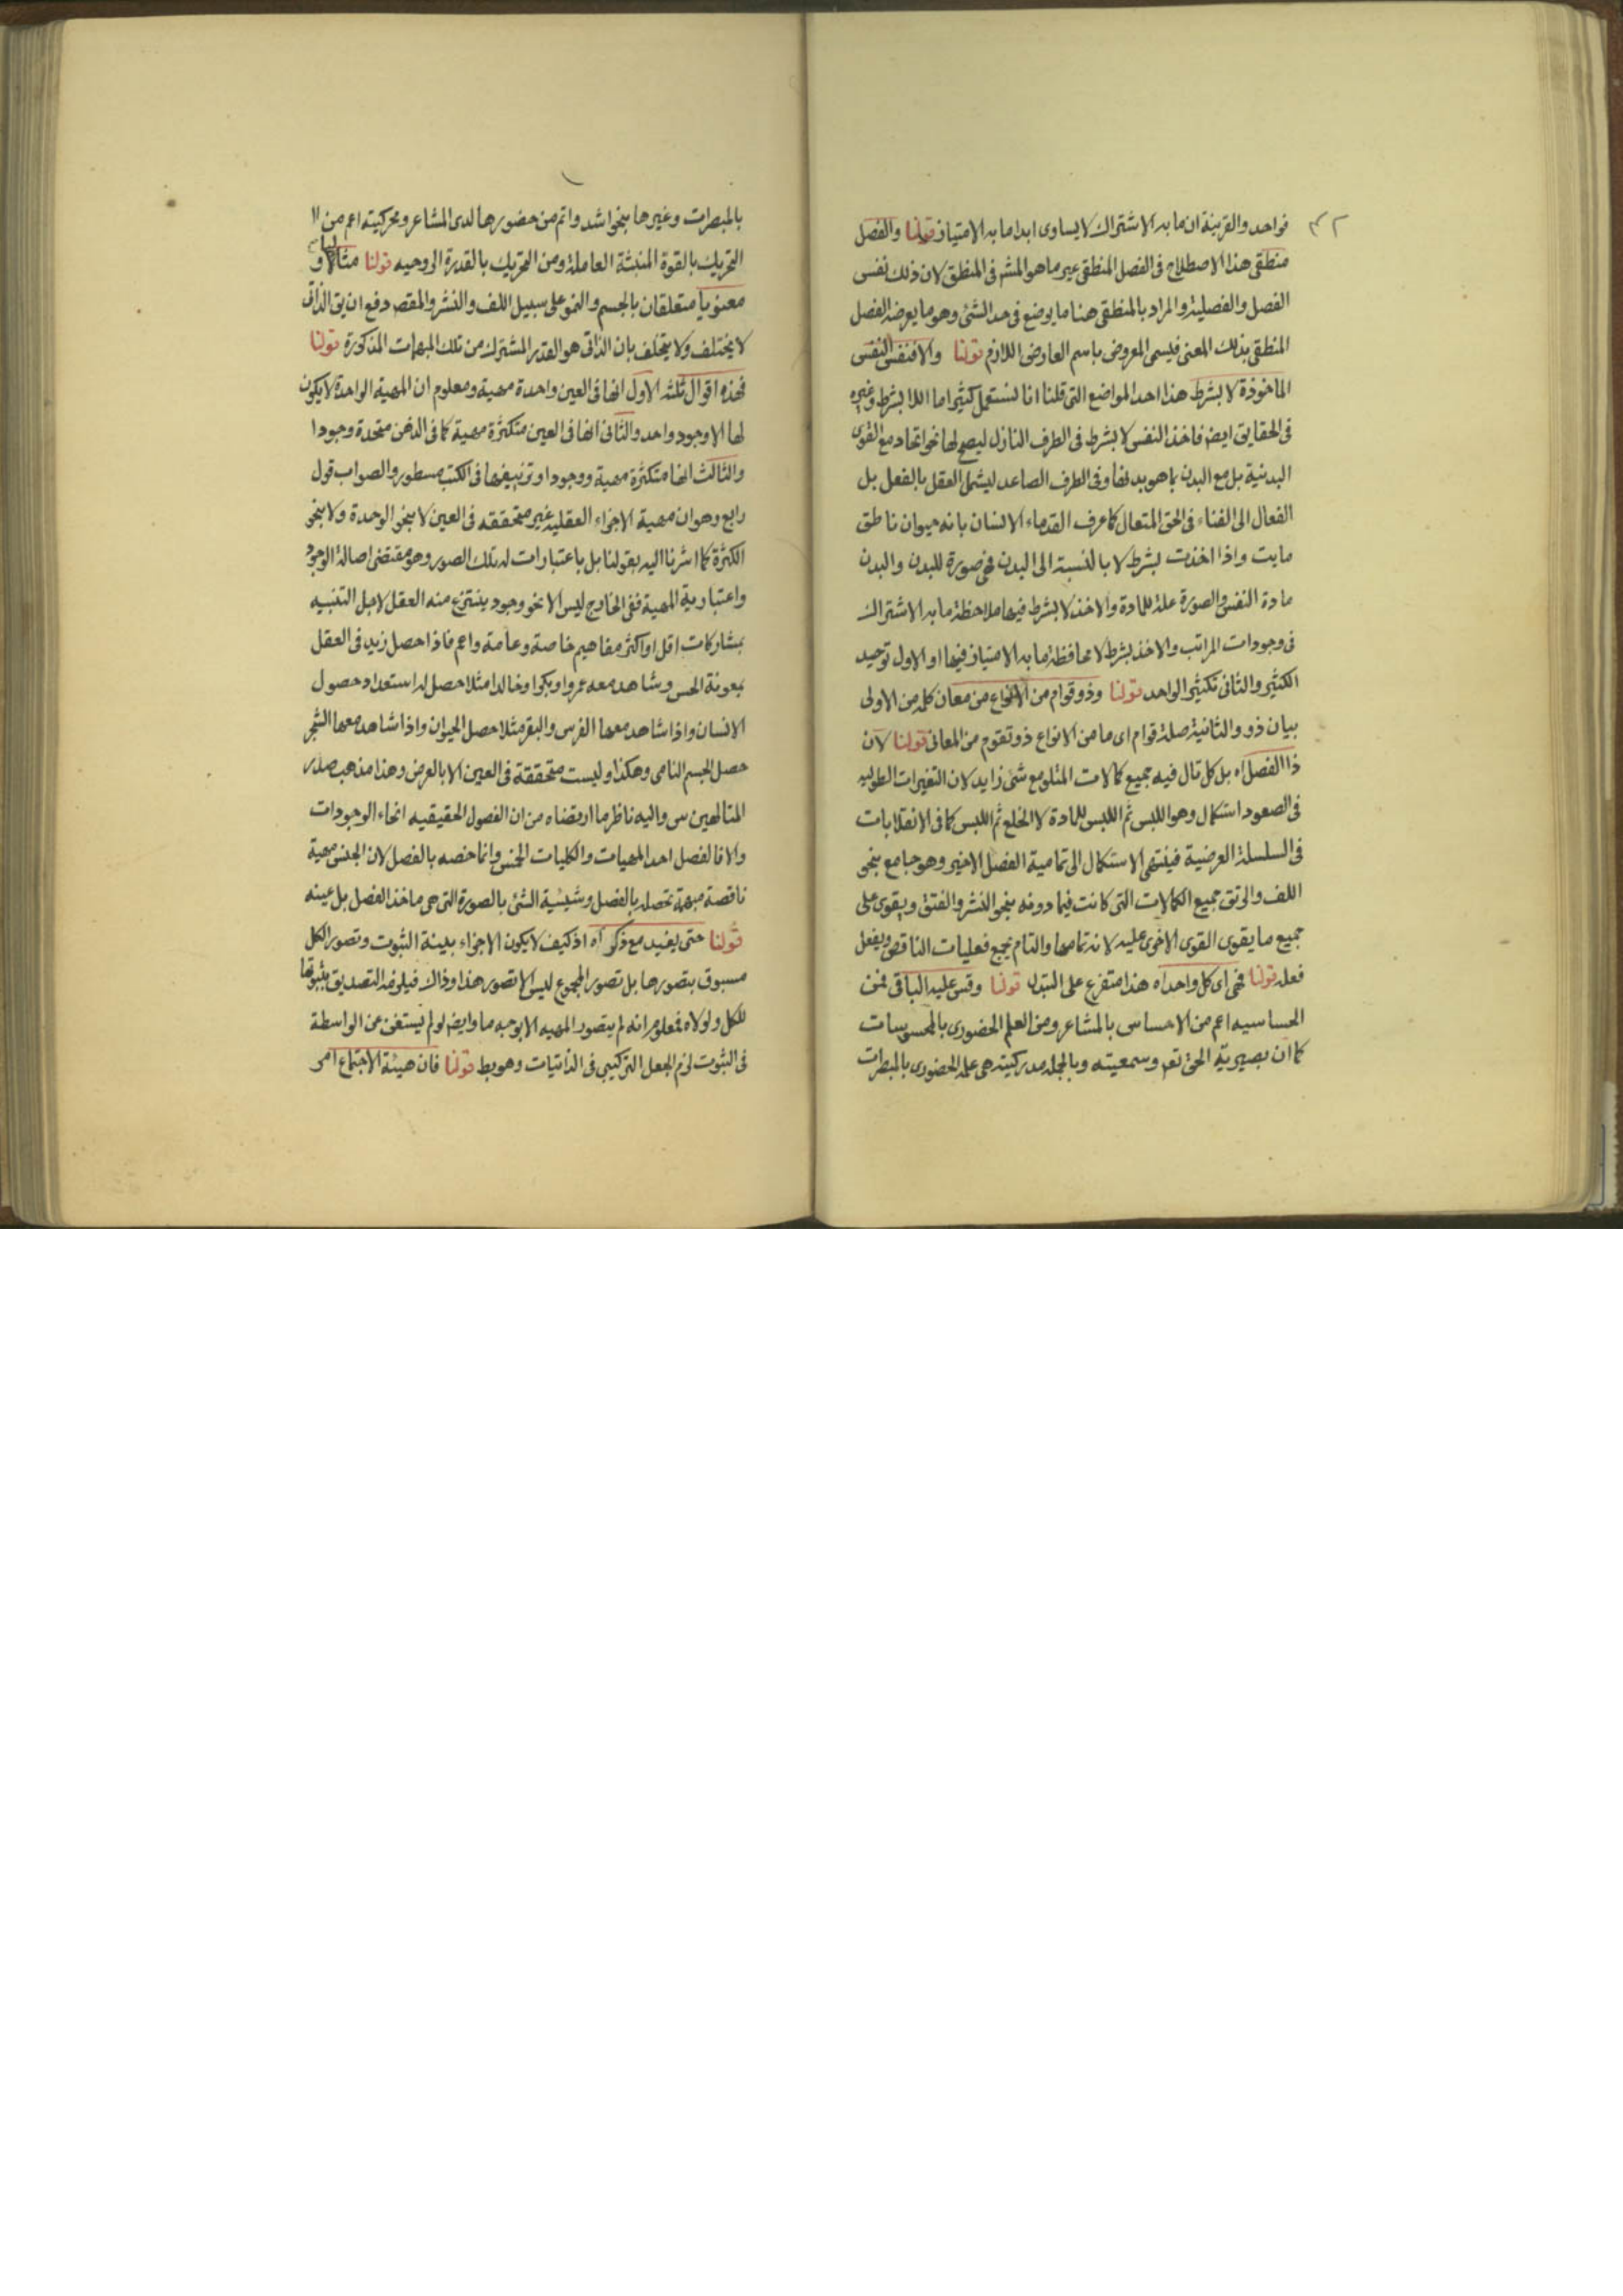 ٤٢
فواحد والقرينة ان ما به الاشتراك لا يساوى ابدا ما به الامتياز قولنا والفصل
منطقى هذا الاصطلاح فى الفصل المنطقى غير ما هو المشهر فى المنطق لان ذلك نفس
الفصل والفصلية والمراد بالمنطقى هنا ما يوضع فى حد الشئ وهو ما يعرضه الفصل
المنطقى بذلك المعنى فيسمى المعروض باسم العارض اللازم قولنا والا فنفس النفس
الماخوذة لا بشرط هذا احد المواضع التى قلنا انا نستعمل كثيرا ما اللا بشرط وغيره
فى الحقايق ايض فاخذ النفس لا بشرط فى الطرف النازل ليصح لها نحو اتحاد مع القوى
البدنية بل مع البدن بما هو بدنها وفى الطرف الصاعد ليشمل العقل بالفعل بل
الفعال الى الفناء فى الحق المتعال كما عرف القدماء الانسان بانه حيوان ناطق
مايت واذا اخذت بشرط لا بالنسبة الى البدن فهى صورة للبدن والبدن
مادة النفس والصورة علة للمادة والاخذ لا بشرط فيها ملاحظة ما به الاشتراك
فى وجودات المراتب والاخذ بشرط لا محافظة ما به الامتياز فيها او الاول توحيد
الكثير والثانى تكثير الواحد قولنا وذو قوام من الانواع من معان كلمة من الاولى
بيان ذو والثانية صلة قوام اى ما من الانواع ذو تقوم من المعانى قولنا لان
ذا الفصل اه بل كل تال فيه جميع كمالات المتلو مع شئ زايد لان التغيرات الطولية
فى الصعود استكمال وهو اللبس ثم اللبس للمادة لا الخلع ثم اللبس كما فى الانقلابات
فى السلسلة العرضية فينتهى الاستكمال الى تمامية الفصل الاخير وهو جامع بنحو
اللف والرتق جميع الكمالات التى كانت فيما دونه بنحو النشر والفتق ويقوى على
جميع ما يقوى القوى الاخرى عليه لانه تمامها والتام يجمع فعليات الناقص ويفعل
فعله قولنا فهى اى كل واحد اه هذا متفرع على التبدل قولنا وقس عليه الباقى فمن
الحساسيه اعم من الاحساس بالمشاعر ومن العلم الحضورى بالمحسوسات
كما ان بصيرية الحق تعم وسمعيته وبالجمله مدركيته هى علمه الحضورى بالمبصرات
بالمبصرات وغيرها بنحو اشد واتم من حضورها لدى المشاعر ومحركيته اعم من
التحريك بالقوة المنبثة العاملة ومن التحريك بالقدرة الروحيه قولنا مثاليا و
معنويا متعلقان بالجسم والنمو على سبيل اللف والنشر والمقصد دفع ان يق الذاتى
لا يختلف ولا يتخلف بان الذاتى هو القدر المشترك من تلك المبهمات المذكورة قولنا
فهذه اقوال ثلثه الاول انها فى العين واحدة مهية ومعلوم ان المهية الواحدة لا يكون
لها الا وجود واحد والثانى انها فى العين متكثرة مهية كما فى الذهن متحدة وجودا
والثالث انها متكثرة مهية ووجودا وتزييفها فى الكتب مسطور والصواب قول
رابع وهو ان مهية الاجزاء العقلية غير متحققه فى العين لا بنحو الوحدة ولا بنحو
الكثرة كما اشرنا اليه بقولنا بل باعتبارات له تلك الصور وهو مقتضى اصالة الوجود
واعتبارية المهية ففى الخارج ليس الا نحو وجود ينتزع منه العقل لاجل التنبيه
بمشاركات اقل او اكثر مفاهيم خاصة وعامة واعم فاذا حصل زيد فى العقل
بمعونة الحس وشاهد معه عمروا وبكرا وخالدا مثلا حصل له استعداد حصول
الانسان واذا شاهد معها الفرس والبقر مثلا حصل الحيوان واذا شاهد معها الشجر
حصل الجسم النامى وهكذا وليست متحققة فى العين الا بالعرض وهذا مذهب صدر
المتالهين س واليه ناظر ما ارتضاه من ان الفصول الحقيقيه انحاء الوجودات
والا فالفصل احد المهيات والكليات الخمس وانما خصه بالفصل لان الجنس مهية
ناقصة مبهمة تحصله بالفصل وشيئية الشئ بالصورة التى هى ماخذ الفصل بل عينه
قولنا حتى يفيد مع ذكر اه اذ كيف لا يكون الاجزاء بينة الثبوت وتصور الكل
مسبوق بتصورها بل تصور المجموع ليس الا تصور هذا وذاك فيلزمه التصديق بثبوتها
للكل ولولاه فمعلوم انه لم يتصور المهيه الا بوجه ما وايض لو لم يستغن عن الواسطة
فى الثبوت لزم الجعل التركيبى فى الذاتيات وهو بط قولنا فان هيئة الاجتماع امر